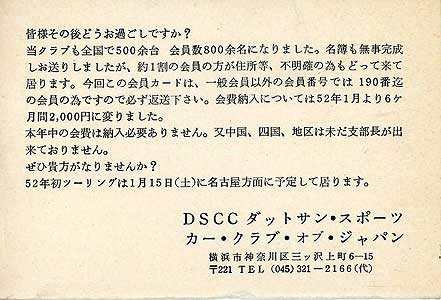 皆様その後どうお過ごしですか?
当クラブも全国で500余台　会員数800余名になりました。名簿も無事完成
しお送りしましたが、約1割の会員の方が住所等、不明確の為もどって来て
居ります。今回この会員カードは、一般会員以外の会員番号では190番迄
の会員の為ですので必ず返送下さい。会費納入については52年1月より6ケ
月間2,000円に変りました。
本年中の会費は納入必要ありません。又中国、四国、地区は未だ支部長が出
来ておりません。
ぜひ貴方がなりませんか?
52年初ツーリングは1月15日(土)に名古屋方面に予定して居ります。
DSCCダットサン・スポーツ
カー・クラブ・オブ・ジャパン
横浜市神奈川区三ッ沢上町6—15
〒221 TEL (045) 321—2166(代)